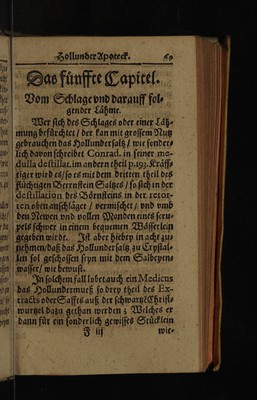 Hollunder Apoteck. 69
Das fünffte Capitel.
Vom Schlage vnd darauff fol-
gender Lähme.
Wer sich des Schlages oder einer Läh-
mung befürchtet / der kan mit grossem Nutz
gebrauchen das Hollundersaltz / wie sonder-
lich davon schreibet Conrad. in seiner me-
dulla destillat. im andern theil p. 193. Kräff-
tiger wird es / so es mit dem dritten theil des
flüchtigen Beernstein Saltzes / so sich in der
destillation des Börnsteins in der retor-
ten oben anschläget / vermischet / vnd vmb
den Newen vnd vollen Monden eines scru-
pels schwer in einem bequemen Wässerlein
gegeben wirdt. Ist aber hiebey in acht zu
nehmen / daß das Hollundersaltz zu Crystal-
len sol geschossen seyn mit dem Salbeyen-
wasser / wie bewust.
In solchem fall lobet auch ein Medicus
das Hollundermuß / so drey theil des Ex-
tracts oder Saffts auß der schwartz Christ-
wurtzel dazu gethan werden; Welches er
dann für ein sonderlich gewisses Stücklein
F iij wie-